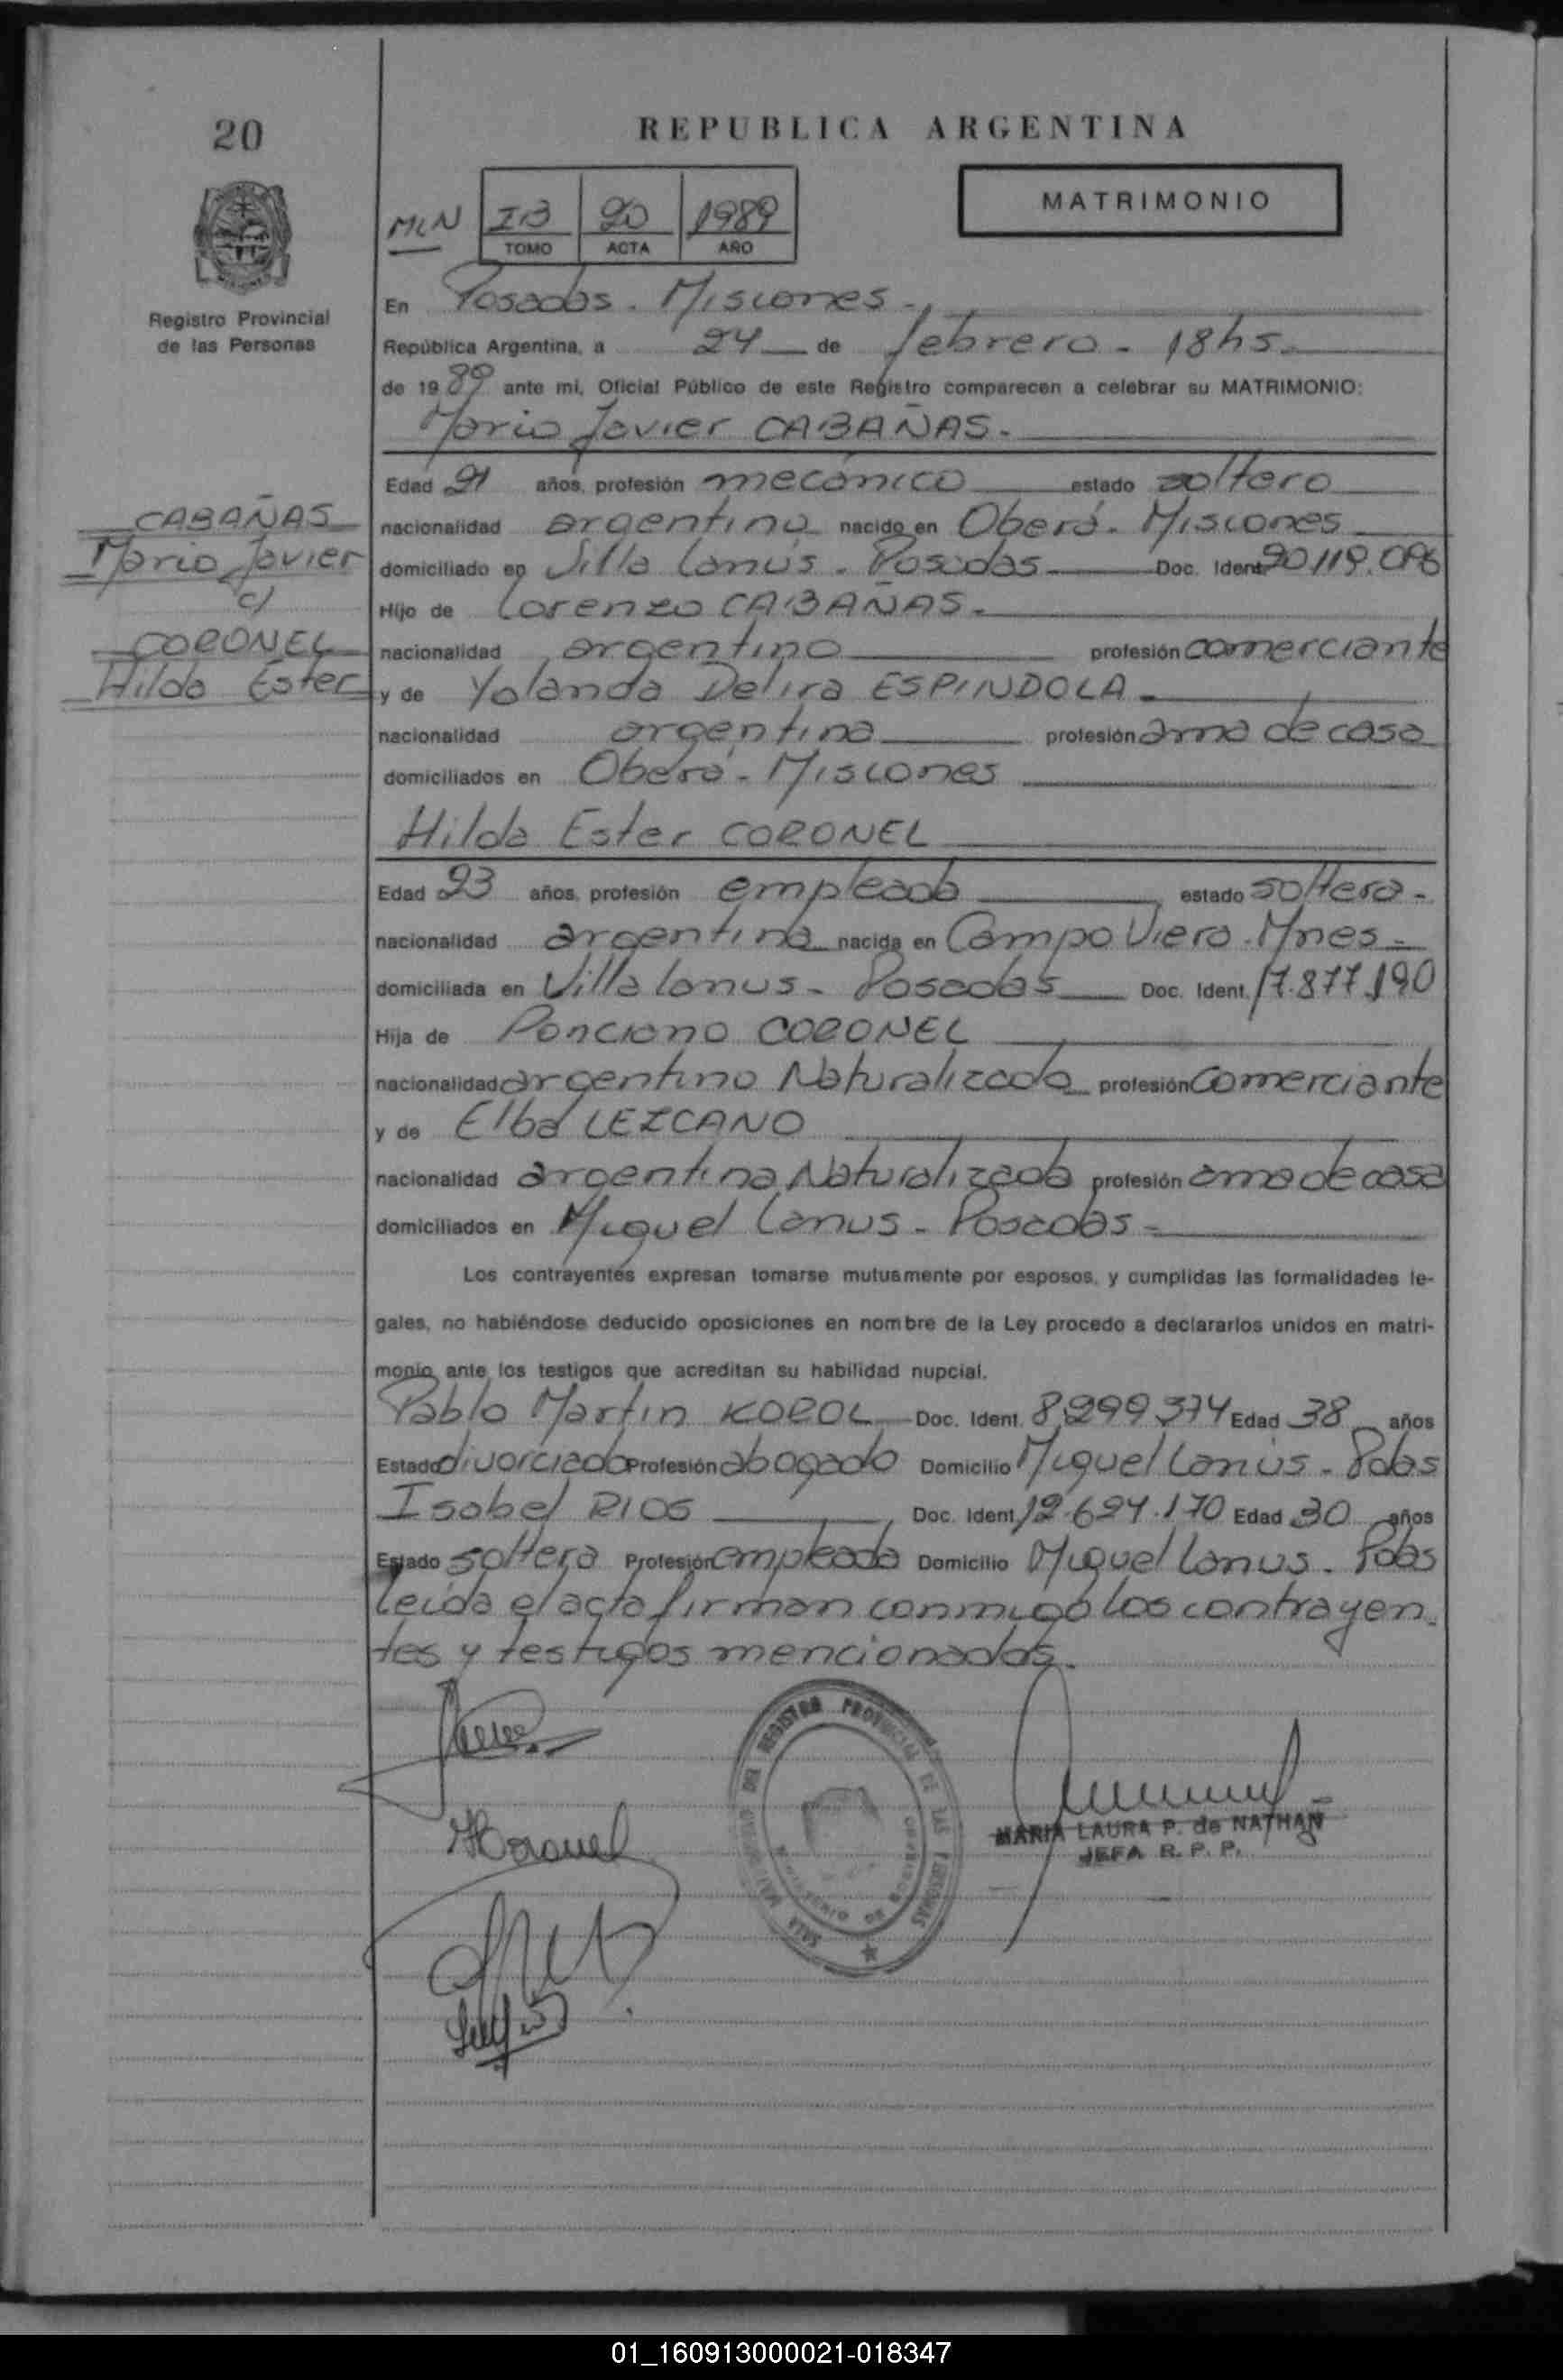 20
REPUBLICA ARGENTINA
MATRIMONIO
MLN
IB 20 1989
TOMO ACTA AÑO
Registro Provincial
de las Personas
En Posadas - Misiones -
República Argentina, a 24 de febrero - 18hs.
de 1989 ante mi, Oficial Público de este Registro comparecen a celebrar su MATRIMONIO:
Mario Javier CABAÑAS.
CABAÑAS
Mario Javier
c/
CORONEL
Hilda Ester
Edad 21 años, profesión mecánico estado soltero
nacionalidad argentino nacido en Oberá - Misiones
domiciliado en Villa Lanús - Posadas Doc. Ident. 20.119.096
Hijo de Lorenzo CABAÑAS.
nacionalidad argentino profesión comerciante
y de Yolanda Delira ESPINDOLA
nacionalidad argentina profesión ama de casa
domiciliados en Oberá - Misiones
Hilda Ester CORONEL
Edad 23 años, profesión empleada estado soltera -
nacionalidad argentina nacida en Campo Viera - Mnes -
domiciliada en Villa Lanus - Posadas Doc. Ident. 17.877.190
Hija de Ponciano CORONEL
nacionalidad argentino Naturalizado profesión Comerciante
y de Elba LEZCANO
nacionalidad argentina Naturalizada profesión ama de casa
domiciliados en Miguel Lanus - Posadas -
Los contrayentes expresan tomarse mutuamente por esposos, y cumplidas las formalidades le-
gales, no habiéndose deducido oposiciones en nombre de la Ley procedo a declararlos unidos en matri-
monio ante los testigos que acreditan su habilidad nupcial.
Pablo Martin KOROL Doc. Ident. 8.299.374 Edad 38 años
Estado divorciado Profesión abogado Domicilio Miguel Lanús - Pdas
Isabel RIOS Doc. Ident. 12.624.170 Edad 30 años
Estado soltera Profesión empleada Domicilio Miguel Lanus - Pdas
leída el acta firman conmigo los contrayen-
tes y testigos mencionados.
HCoronel
REGISTRO PROVINCIAL DE LAS PERSONAS
MARIA LAURA P. de NATHAN
JEFA R. P. P.
01_160913000021-018347